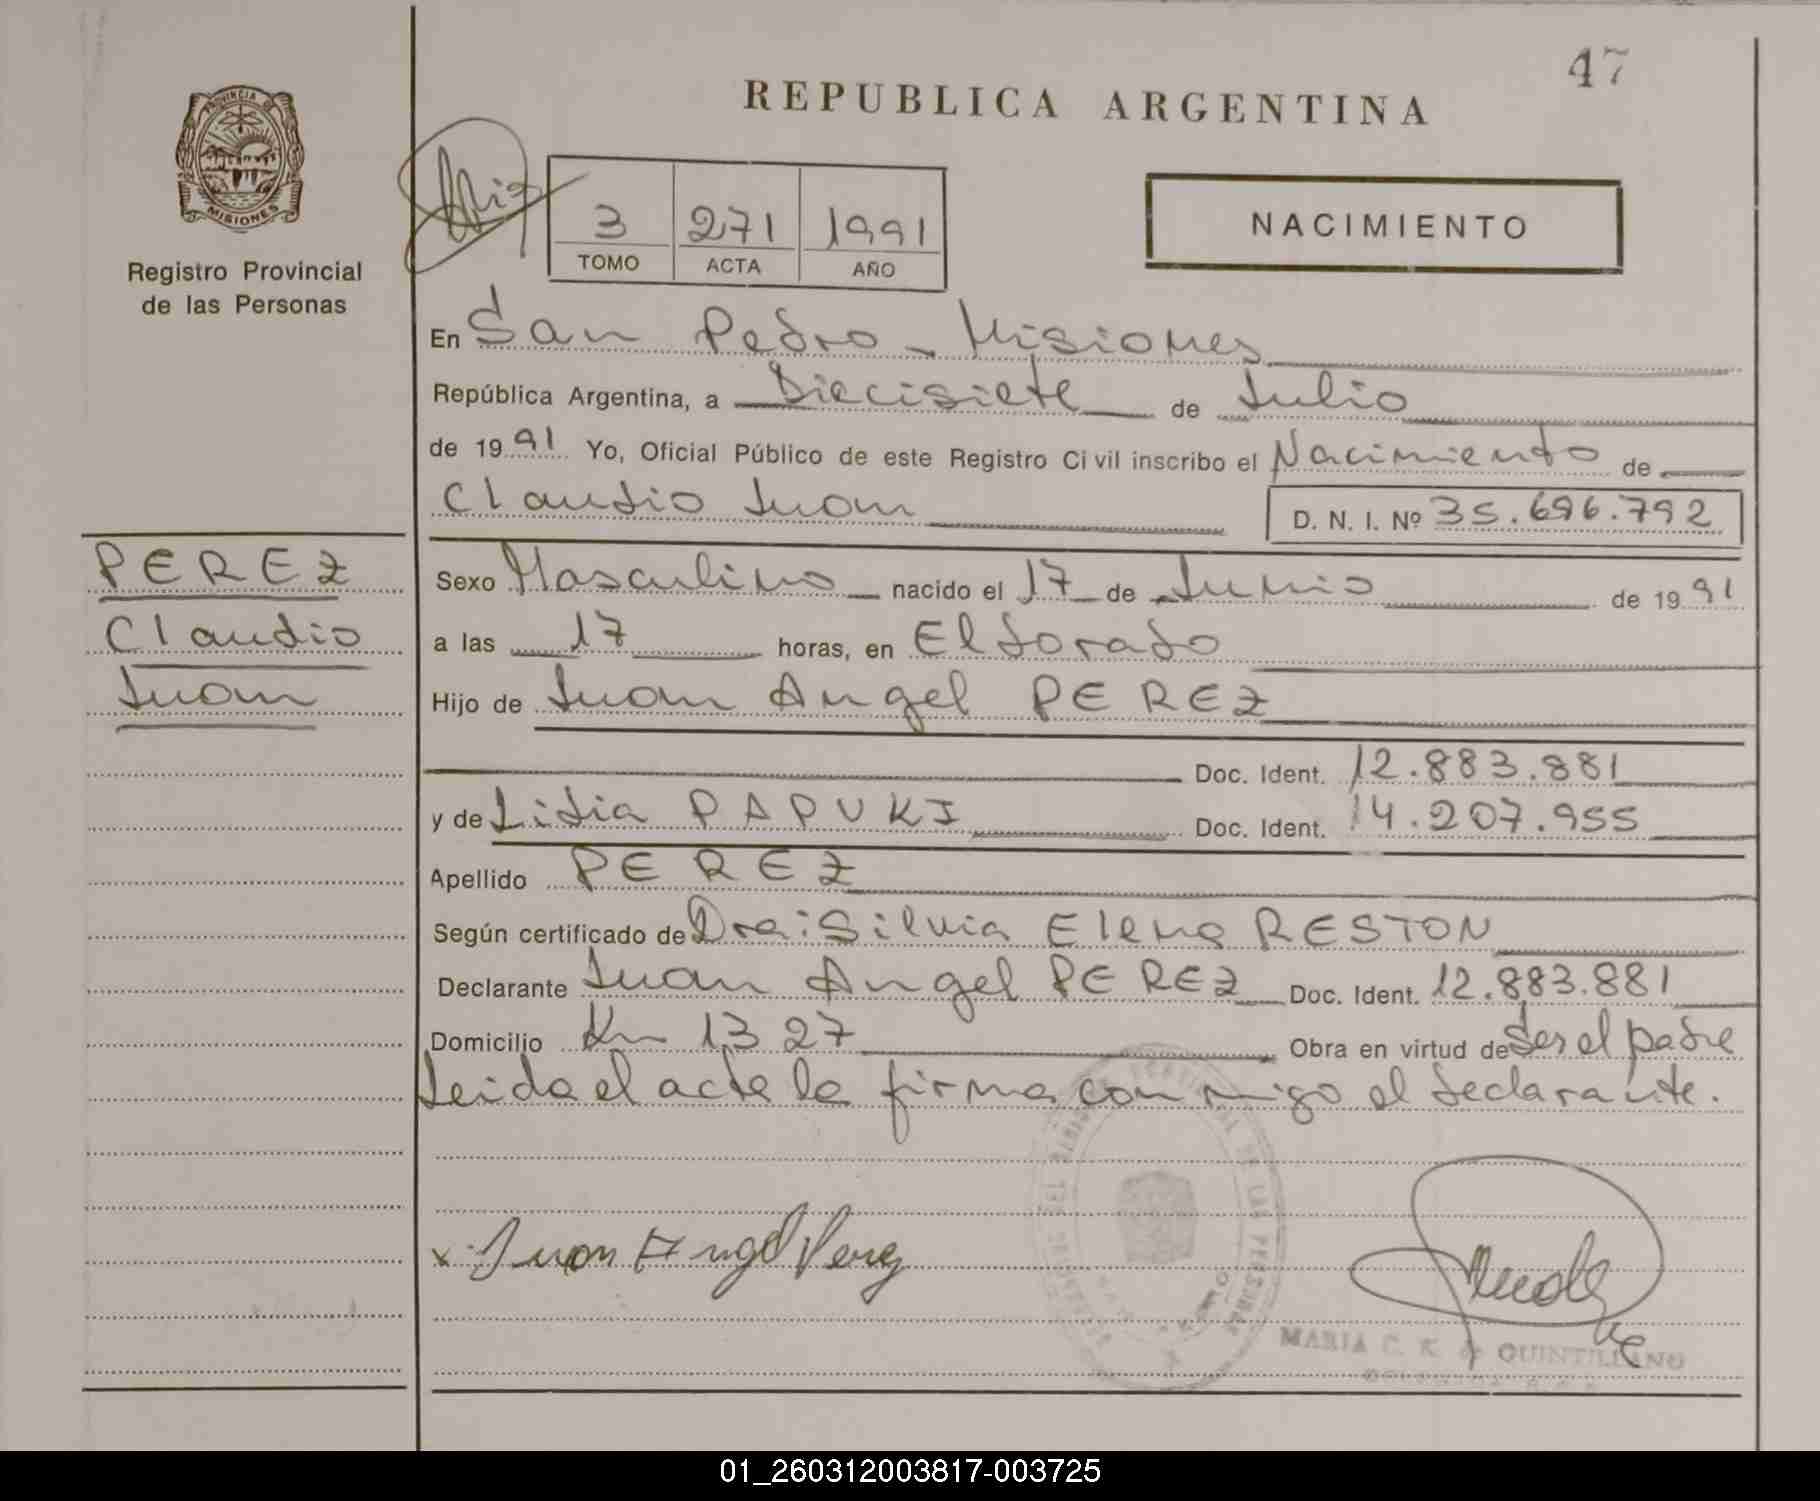 47
REPUBLICA ARGENTINA
PROVINCIA DE
MISIONES
Registro Provincial
de las Personas
3 271 1991
TOMO ACTA AÑO
NACIMIENTO
En San Pedro - Misiones
República Argentina, a Diecisiete de Julio
de 1991 Yo, Oficial Público de este Registro Civil inscribo el Nacimiento de
Claudio Juan D. N. I. Nº 35.696.792
PEREZ
Claudio
Juan
Sexo Masculino nacido el 17 de Junio de 1991
a las 17 horas, en Eldorado
Hijo de Juan Angel PEREZ
Doc. Ident. 12.883.881
y de Lidia PAPUKI Doc. Ident. 14.207.955
Apellido PEREZ
Según certificado de Dra: Silvia Elena RESTON
Declarante Juan Angel PEREZ Doc. Ident. 12.883.881
Domicilio Km 1327 Obra en virtud de ser el padre
Leida el acta la firma conmigo el declarante.
x Juan Angel Perez
MARIA C. K. de QUINTILLANO
01_260312003817-003725